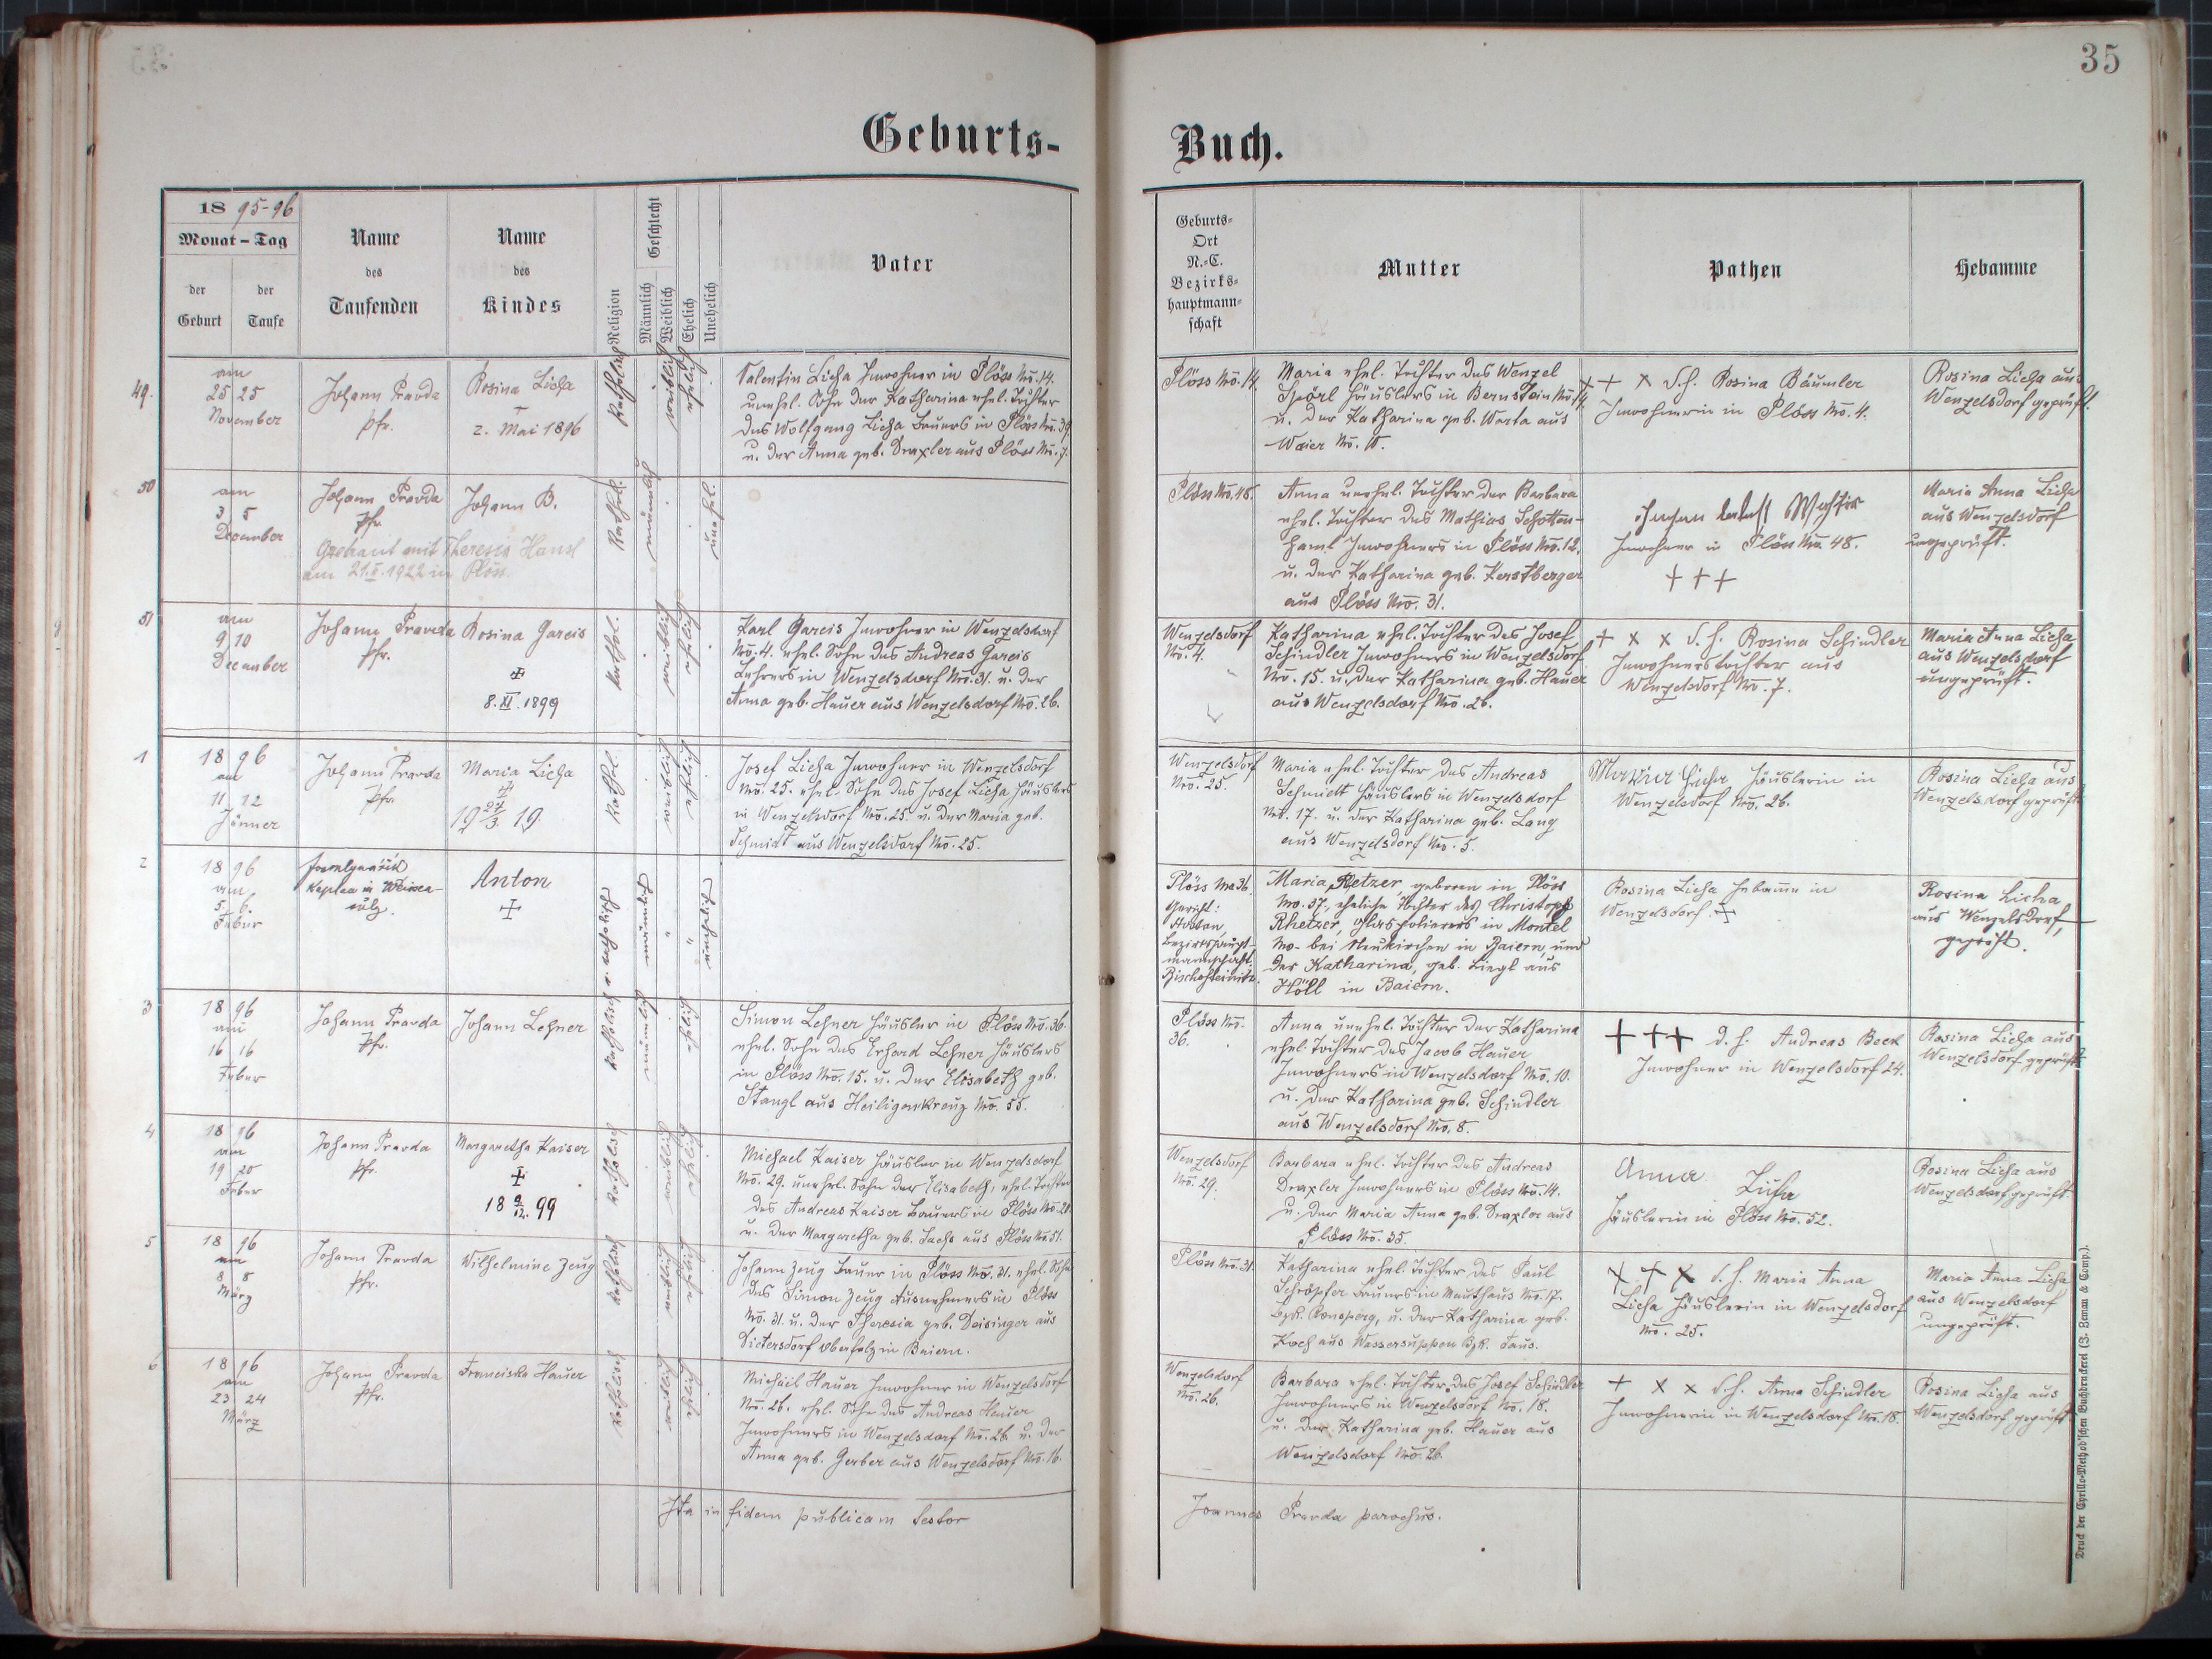 35
Geburts-
Buch.
18 95-96
Monat – Tag
der
Geburt
der
Taufe
Name
des
Taufenden
Name
des
Kindes
Religion
Geschlecht
Männlich
Weiblich
Ehelich
Unehelich
Vater
Geburts-
Ort
N.-C.
Bezirks-
hauptmann-
schaft
Mutter
Pathen
Hebamme
49.
am
25 25
November
Johann Pravda
Pfr.
Rosina Licha
+
2. Mai 1896
Kathol.
weiblich
ehelich
Valentin Licha Inwohner in Plöss No. 14.
unehel. Sohn der Katharina ehel. Tochter
des Wolfgang Licha Bauers in Plöss No. 39
u. der Anna geb. Draxler aus Plöss No. 7.
Plöss No. 14.
Maria ehel. Tochter des Wenzel
Spörl Häuslers in Bernstein No.
u. der Katharina geb. Warta aus
Waier No.
+ + + d. h. Rosina Bäumler
Inwohnerin in Plöss No. 4.
Rosina Licha aus
Wenzelsdorf geprüft.
50
am
3 5
December
Johann Pravda
Pfr.
Johann B.
Getraut mit Theresia Hansl
am 21.II.1922 in Plöss.
Kathol.
männlich
unehel.
Plöss No. 48.
Anna unehel. Tochter der Barbara
ehel. Tochter des Mathias Schotten-
haml Inwohners in Plöss No. 12.
u. der Katharina geb. Kerstberger
aus Plöss No. 31.
Inwohner in Plöss No. 48.
+ + +
Maria Anna Licha
aus Wenzelsdorf
ungeprüft.
51
am
9 10
December
Johann Pravda
Pfr.
Rosina Gareis
+
8. XI. 1899
Kathol.
weiblich
ehelich
Karl Gareis Inwohner in Wenzelsdorf
No. 4. ehel. Sohn des Andreas Gareis
Lehrers in Wenzelsdorf No. 31. u. der
Anna geb. Hauer aus Wenzelsdorf No. 26.
Wenzelsdorf
No. 4.
Katharina ehel. Tochter des Josef
Schindler Inwohners in Wenzelsdorf
No. 15. u. der Katharina geb. Hauer
aus Wenzelsdorf No. 26.
+ x x d. h. Rosina Schindler
Inwohnerstochter aus
Wenzelsdorf No. 7.
Maria Anna Licha
aus Wenzelsdorf
ungeprüft.
1
18 96
am
11 12
Jänner
Johann Pravda
Pfr.
Maria Licha
+
19 27/3 19
Kathol.
weiblich
ehelich
Josef Licha Inwohner in Wenzelsdorf
No. 25. ehel. Sohn des Josef Licha Häuslers
in Wenzelsdorf No. 25. u. der Maria geb.
Schmidt aus Wenzelsdorf No. 25.
Wenzelsdorf
No. 25.
Maria ehel. Tochter des Andreas
Schmidt Häuslers in Wenzelsdorf
No. 17. u. der Katharina geb. Lang
aus Wenzelsdorf No. 5.
Licha Häuslerin in
Wenzelsdorf No. 26.
Rosina Licha aus
Wenzelsdorf geprüft
2
18 96
am
5. 6.
Feber
Kaplan in Weissen-
sulz.
Anton
+
katholisch
männlich
unehelich
Plöss No 36.
Gericht:
Hostau,
Bezirkshaupt-
mannschaft:
Bischofteinitz.
Maria Retzer, geboren in Plöss
No. 37., eheliche Tochter des Christoph
Rhetzer, Glaspolierers in Montel
No- bei Neukirchen in Baiern, und
der Katharina, geb. Liegl aus
Höll in Baiern.
Rosina Licha Hebamme in
Wenzelsdorf. +
Rosina Licha
aus Wenzelsdorf,
geprüft.
3
18 96
am
16 16
Feber
Johann Pravda
Pfr.
Johann Lehner
katholisch
männlich
ehelich
Simon Lehner Häusler in Plöss No. 36.
ehel. Sohn des Erhard Lehner Häuslers
in Plöss No. 15. u. der Elisabeth geb.
Stangl aus Heiligenkreuz No. 55.
Plöss No.
36.
Anna unehel. Tochter der Katharina
ehel. Tochter des Jacob Hauer
Inwohners in Wenzelsdorf No. 10.
u. der Katharina geb. Schindler
aus Wenzelsdorf No. 8.
+ + + d. h. Andreas Beck
Inwohner in Wenzelsdorf 24.
Rosina Licha aus
Wenzelsdorf geprüft
4
18 96
am
19 20
Feber
Johann Pravda
Pfr.
Margaretha Kaiser
+
18 9/12. 99
katholisch
weiblich
ehelich
Michael Kaiser Häusler in Wenzelsdorf
No. 29. unehel. Sohn der Elisabeth, ehel. Tochter
des Andreas Kaiser Bauers in Plöss No. 20.
u. der Margaretha geb. Sachs aus Plöss No. 51.
Wenzelsdorf
No. 29.
Barbara ehel. Tochter des Andreas
Draxler Inwohners in Plöss No. 14.
u. der Maria Anna geb. Draxler aus
Plöss No. 35.
Anna Licha
Häuslerin in Plöss No. 52.
Rosina Licha aus
Wenzelsdorf geprüft
5
18 96
am
8 8
März
Johann Pravda
Pfr.
Wilhelmine Zeug
katholisch
weiblich
ehelich
Johann Zeug Bauer in Plöss No. 31. ehel. Sohn
des Simon Zeug Ausnehmers in Plöss
No. 31. u. der Theresia geb. Deisinger aus
Dietersdorf Oberpfalz in Baiern.
Plöss No. 31.
Katharina ehel. Tochter des Paul
Schröpfer Bauers in Mauthaus No. 17.
Bzk. Ronsperg, u. der Katharina geb.
Koch aus Wassersuppen Bzk. Taus.
+ + + d. h. Maria Anna
Licha Häuslerin in Wenzelsdorf
No. 25.
Maria Anna Licha
aus Wenzelsdorf
ungeprüft.
6
18 96
am
23 24
März
Johann Pravda
Pfr.
Franciska Hauer
katholisch
weiblich
ehelich
Michael Hauer Inwohner in Wenzelsdorf
No. 26. ehel. Sohn des Andreas Hauer
Inwohners in Wenzelsdorf No. 26. u. der
Anna geb. Gerber aus Wenzelsdorf No. 16.
Wenzelsdorf
No. 26.
Barbara ehel. Tochter des Josef Schindler
Inwohners in Wenzelsdorf No. 18.
u. der Katharina geb. Hauer aus
Wenzelsdorf No. 26.
+ x x d. h. Anna Schindler
Inwohnerin in Wenzelsdorf No. 18.
Rosina Licha aus
Wenzelsdorf geprüft
Ita in fidem publicam testor
Joannes Pravda parochus.
Druck der Cyrillo-Method'schen Buchdruckerei (J. Zeman & Comp.).